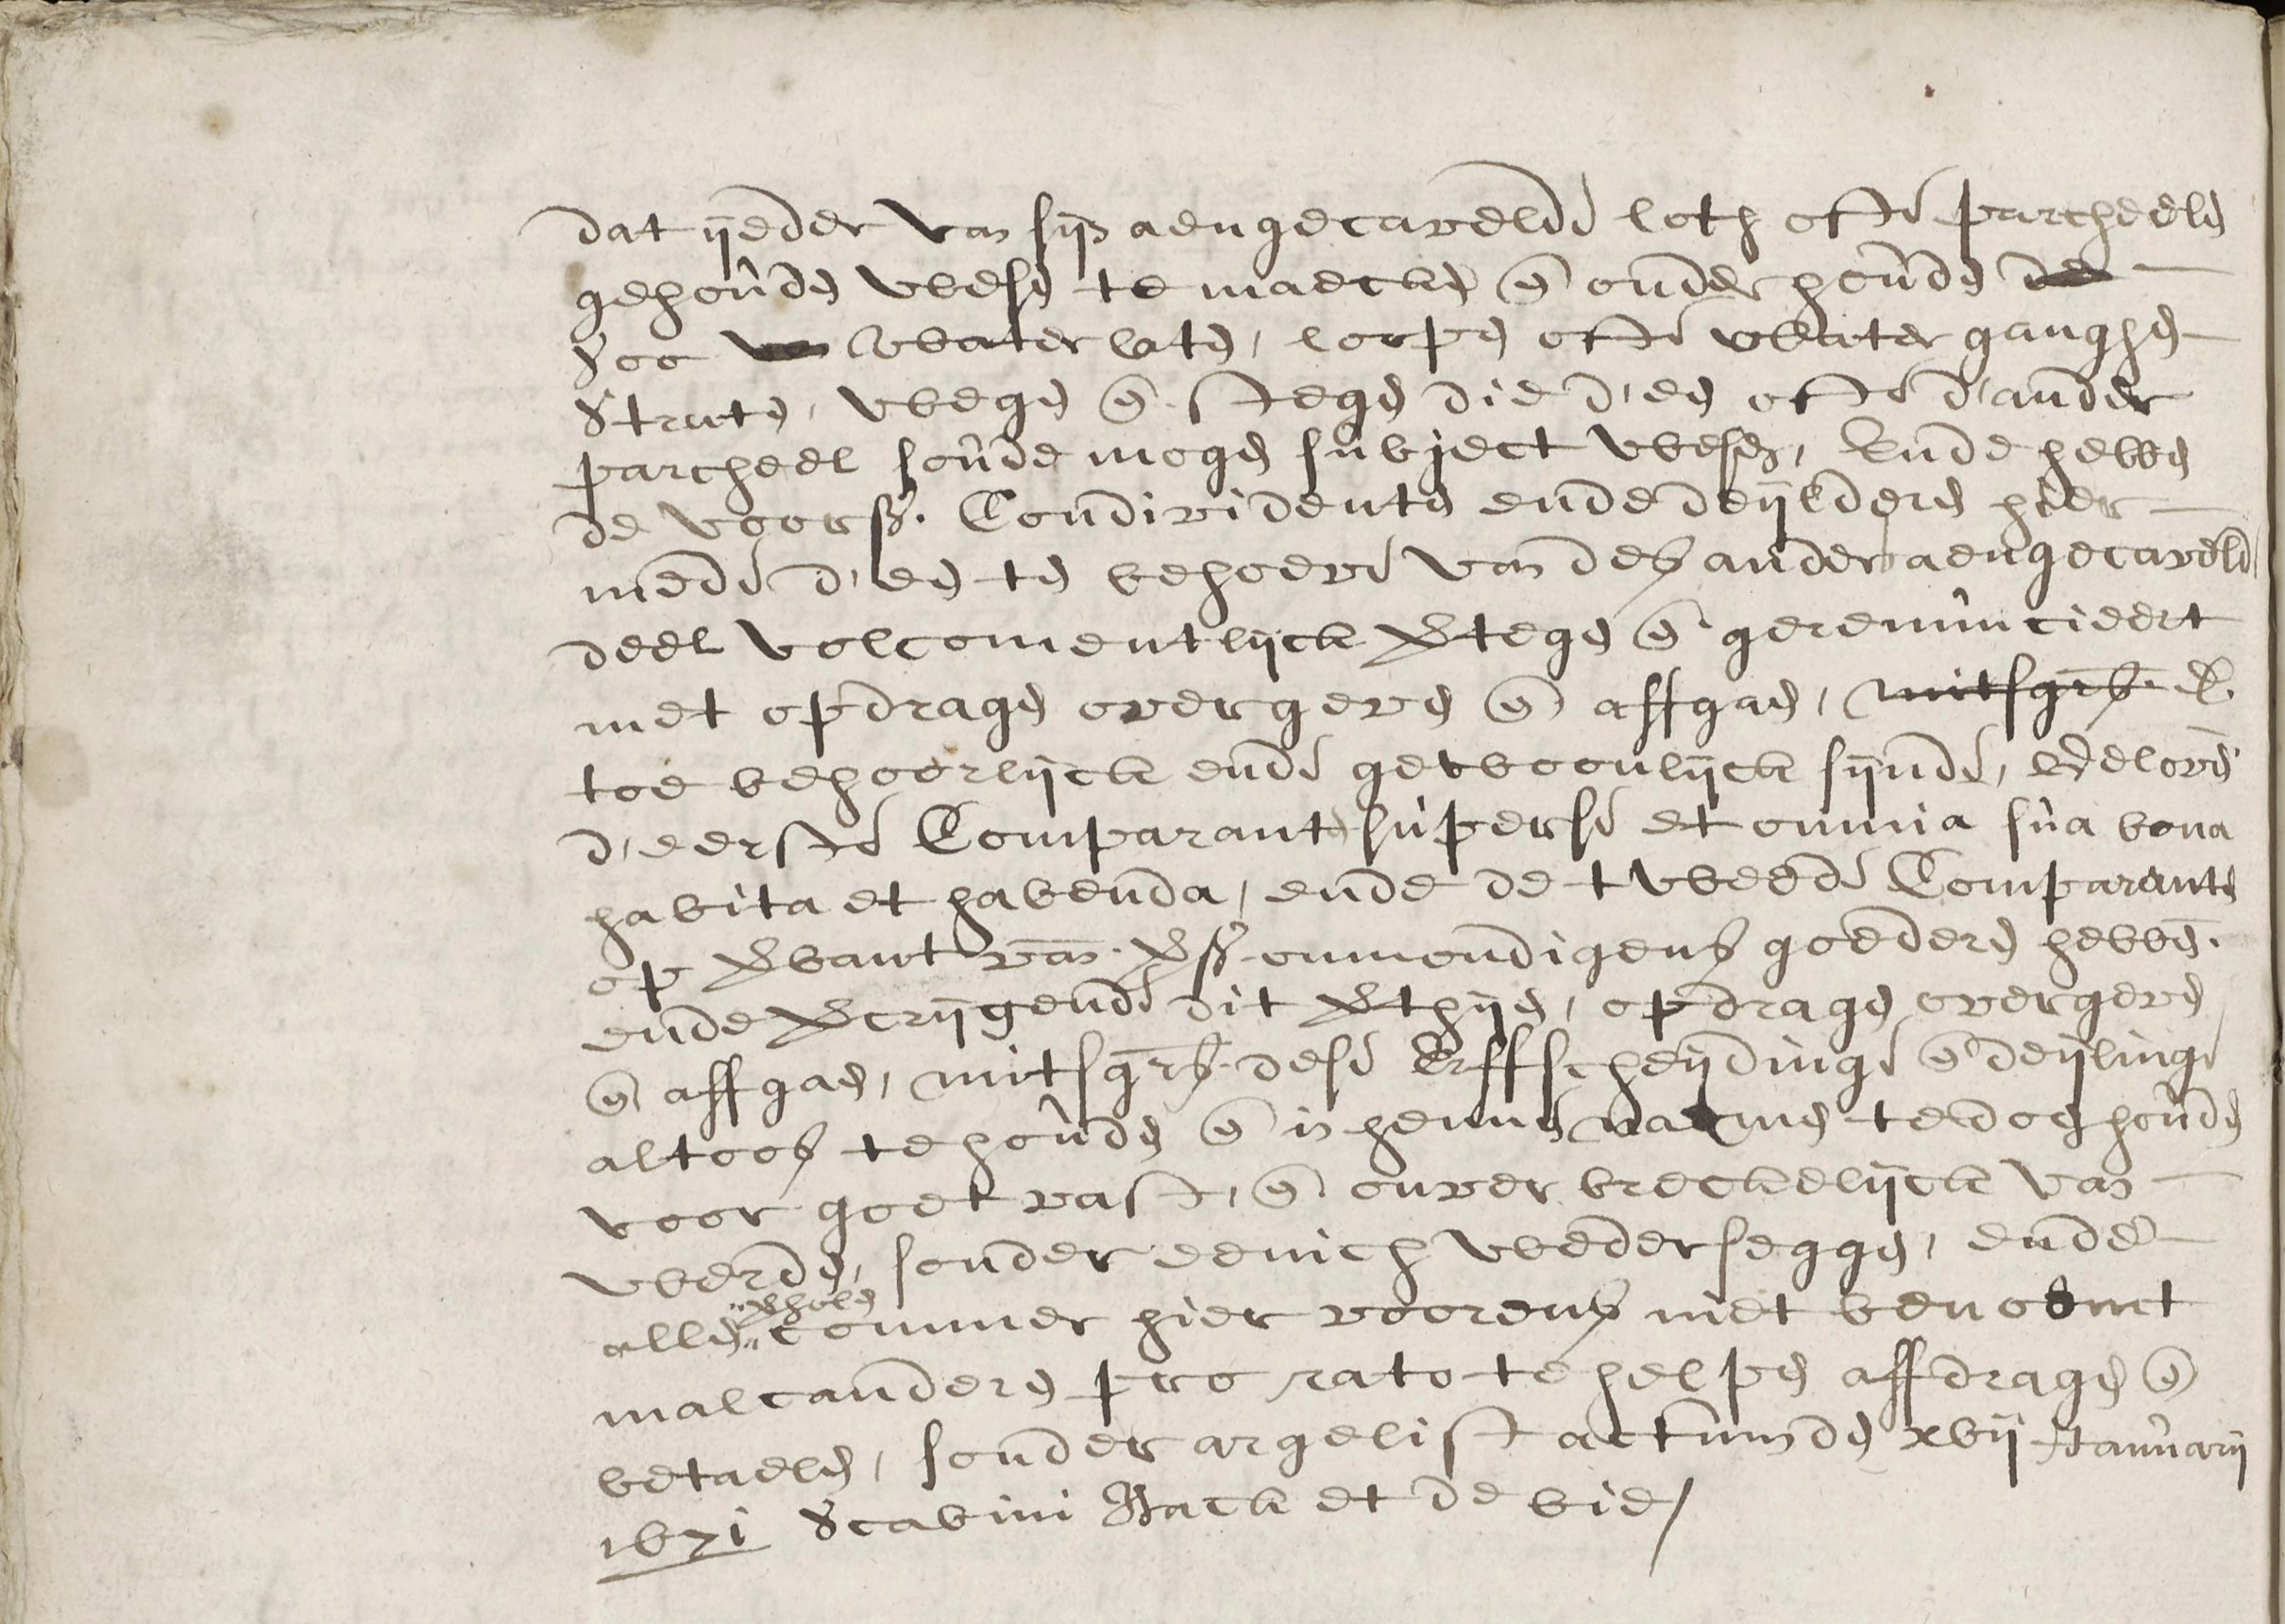 dat ijeder van sijn aengecavelde loth ofte parcheelen
gehouden wesen te maecken en onderhouden de
Soo van waterlaten, loepen ofte waterganghen
Straten, wegen en stegen die d'een ofte d'ander
parcheel soude mogen subject wesen, Ende hebben
de voorsz. Condividenten ende deijlderen hier
mede d'een ten behoeve van des ander aengecavelde
deel volcomentlijck vertegen en gerenuncieert
met opdragen overgeven en affgaen, mitsgrs. &.
toe behoorlijck ende gewoonlijck sijnde, Geloven
d'eerste Comparant super se et omnia sua bona
habita et habenda, ende de tweede Comparante
op verbant van versz onmondigens goederen hebben.
ende vercrijgende dit verthijen, opdragen overgeven
en affgaen, mitsgrs. dese Erffscheijdinge en deijlinge
altoos te houden en in hennen naemen te doen houden
voor goet vast, en onverbreckelijck van
weerden, sonder eenich wederseggen, ende
allen verholen commer hier voorens niet benoemt
malcanderen pro rato te helpen affdragen en
betaelen, sonder argelist actum den xvij Januarij
1671 Scabini Hack et de bie